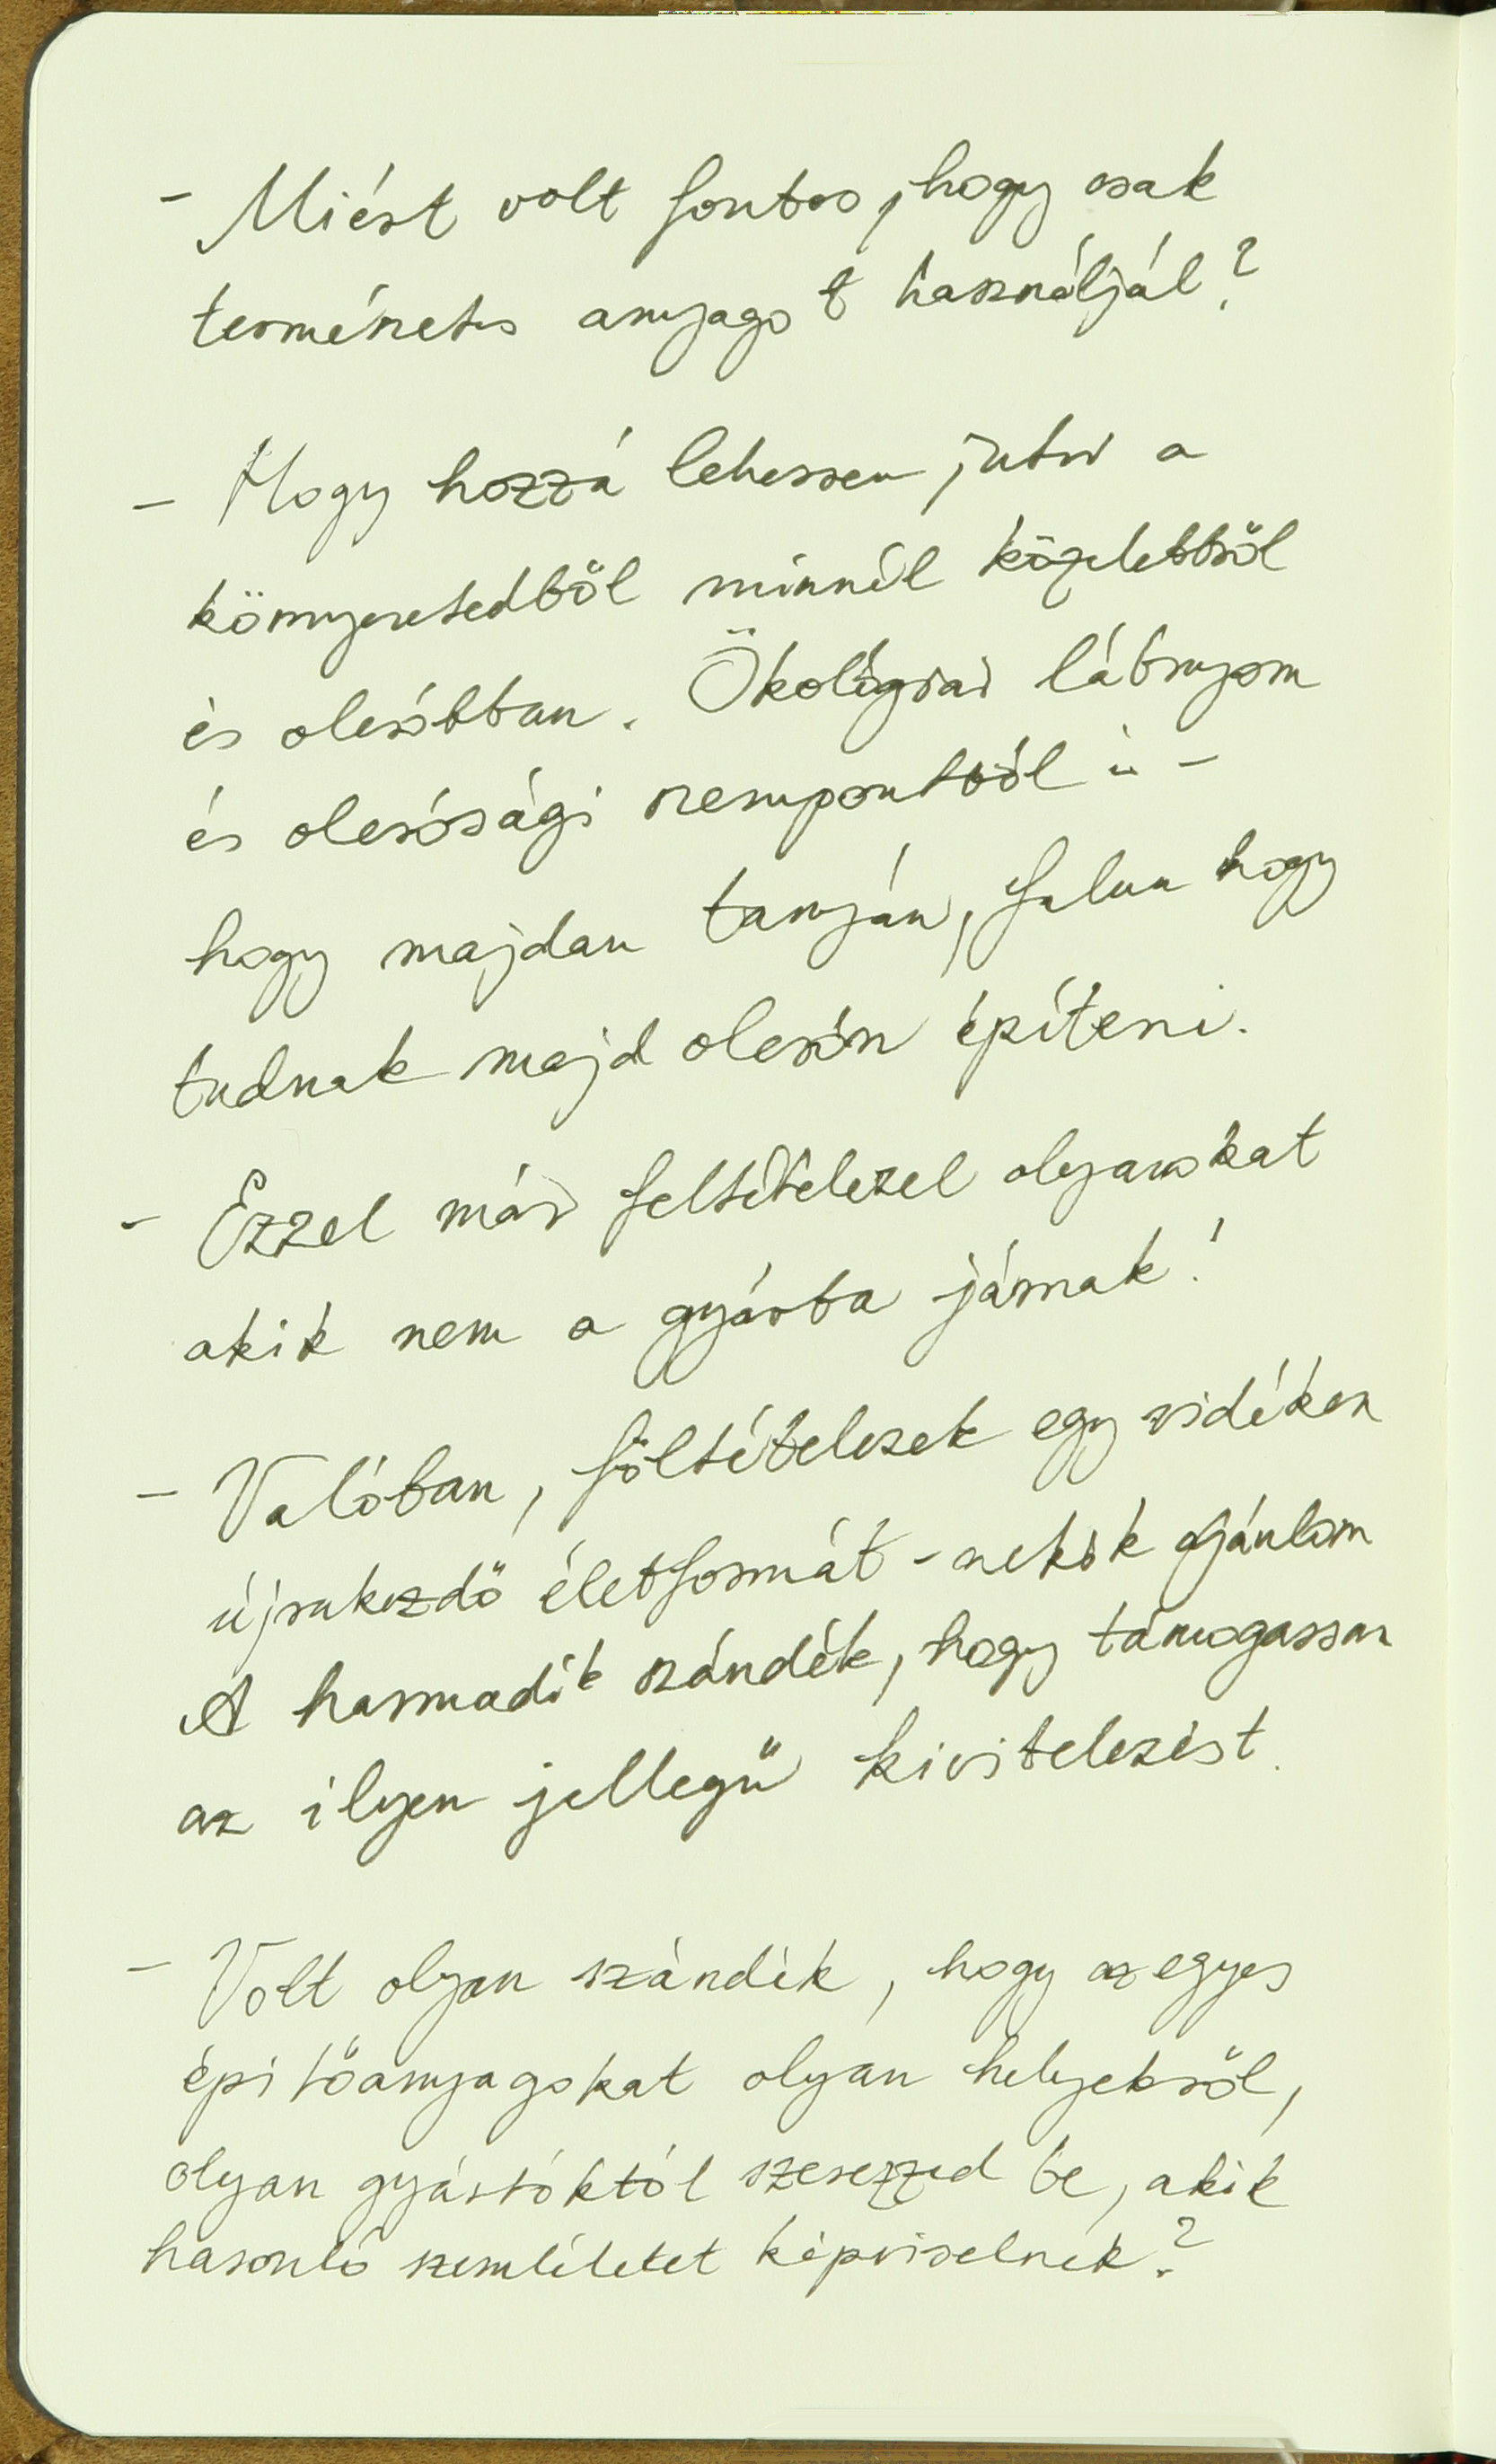 - Miért volt fontos, hogy csak
természetes anyagot használjál?
- Hogy hozzá lehessen jutni a
környezetedből minnél közelebbről
és olcsóbban. Ökológiai lábnyom
és olcsósági szempontból is -
hogy majdan tanyán, falun hogy
tudnak majd olcsón építeni.
- Ezzel már feltételezel olyanokat
akik nem a gyárba járnak!
- Valóban, föltételezek egy vidéken
újrakezdő életformát - nekik ajánlom
A harmadik szándék, hogy támogassam
az ilyen jellegű kivitelezést.
- Volt olyan szándék, hogy az egyes
építőanyagokat olyan helyekről,
olyan gyártóktól szerezzed be, akik
hasonló szemléletet képviselnek?